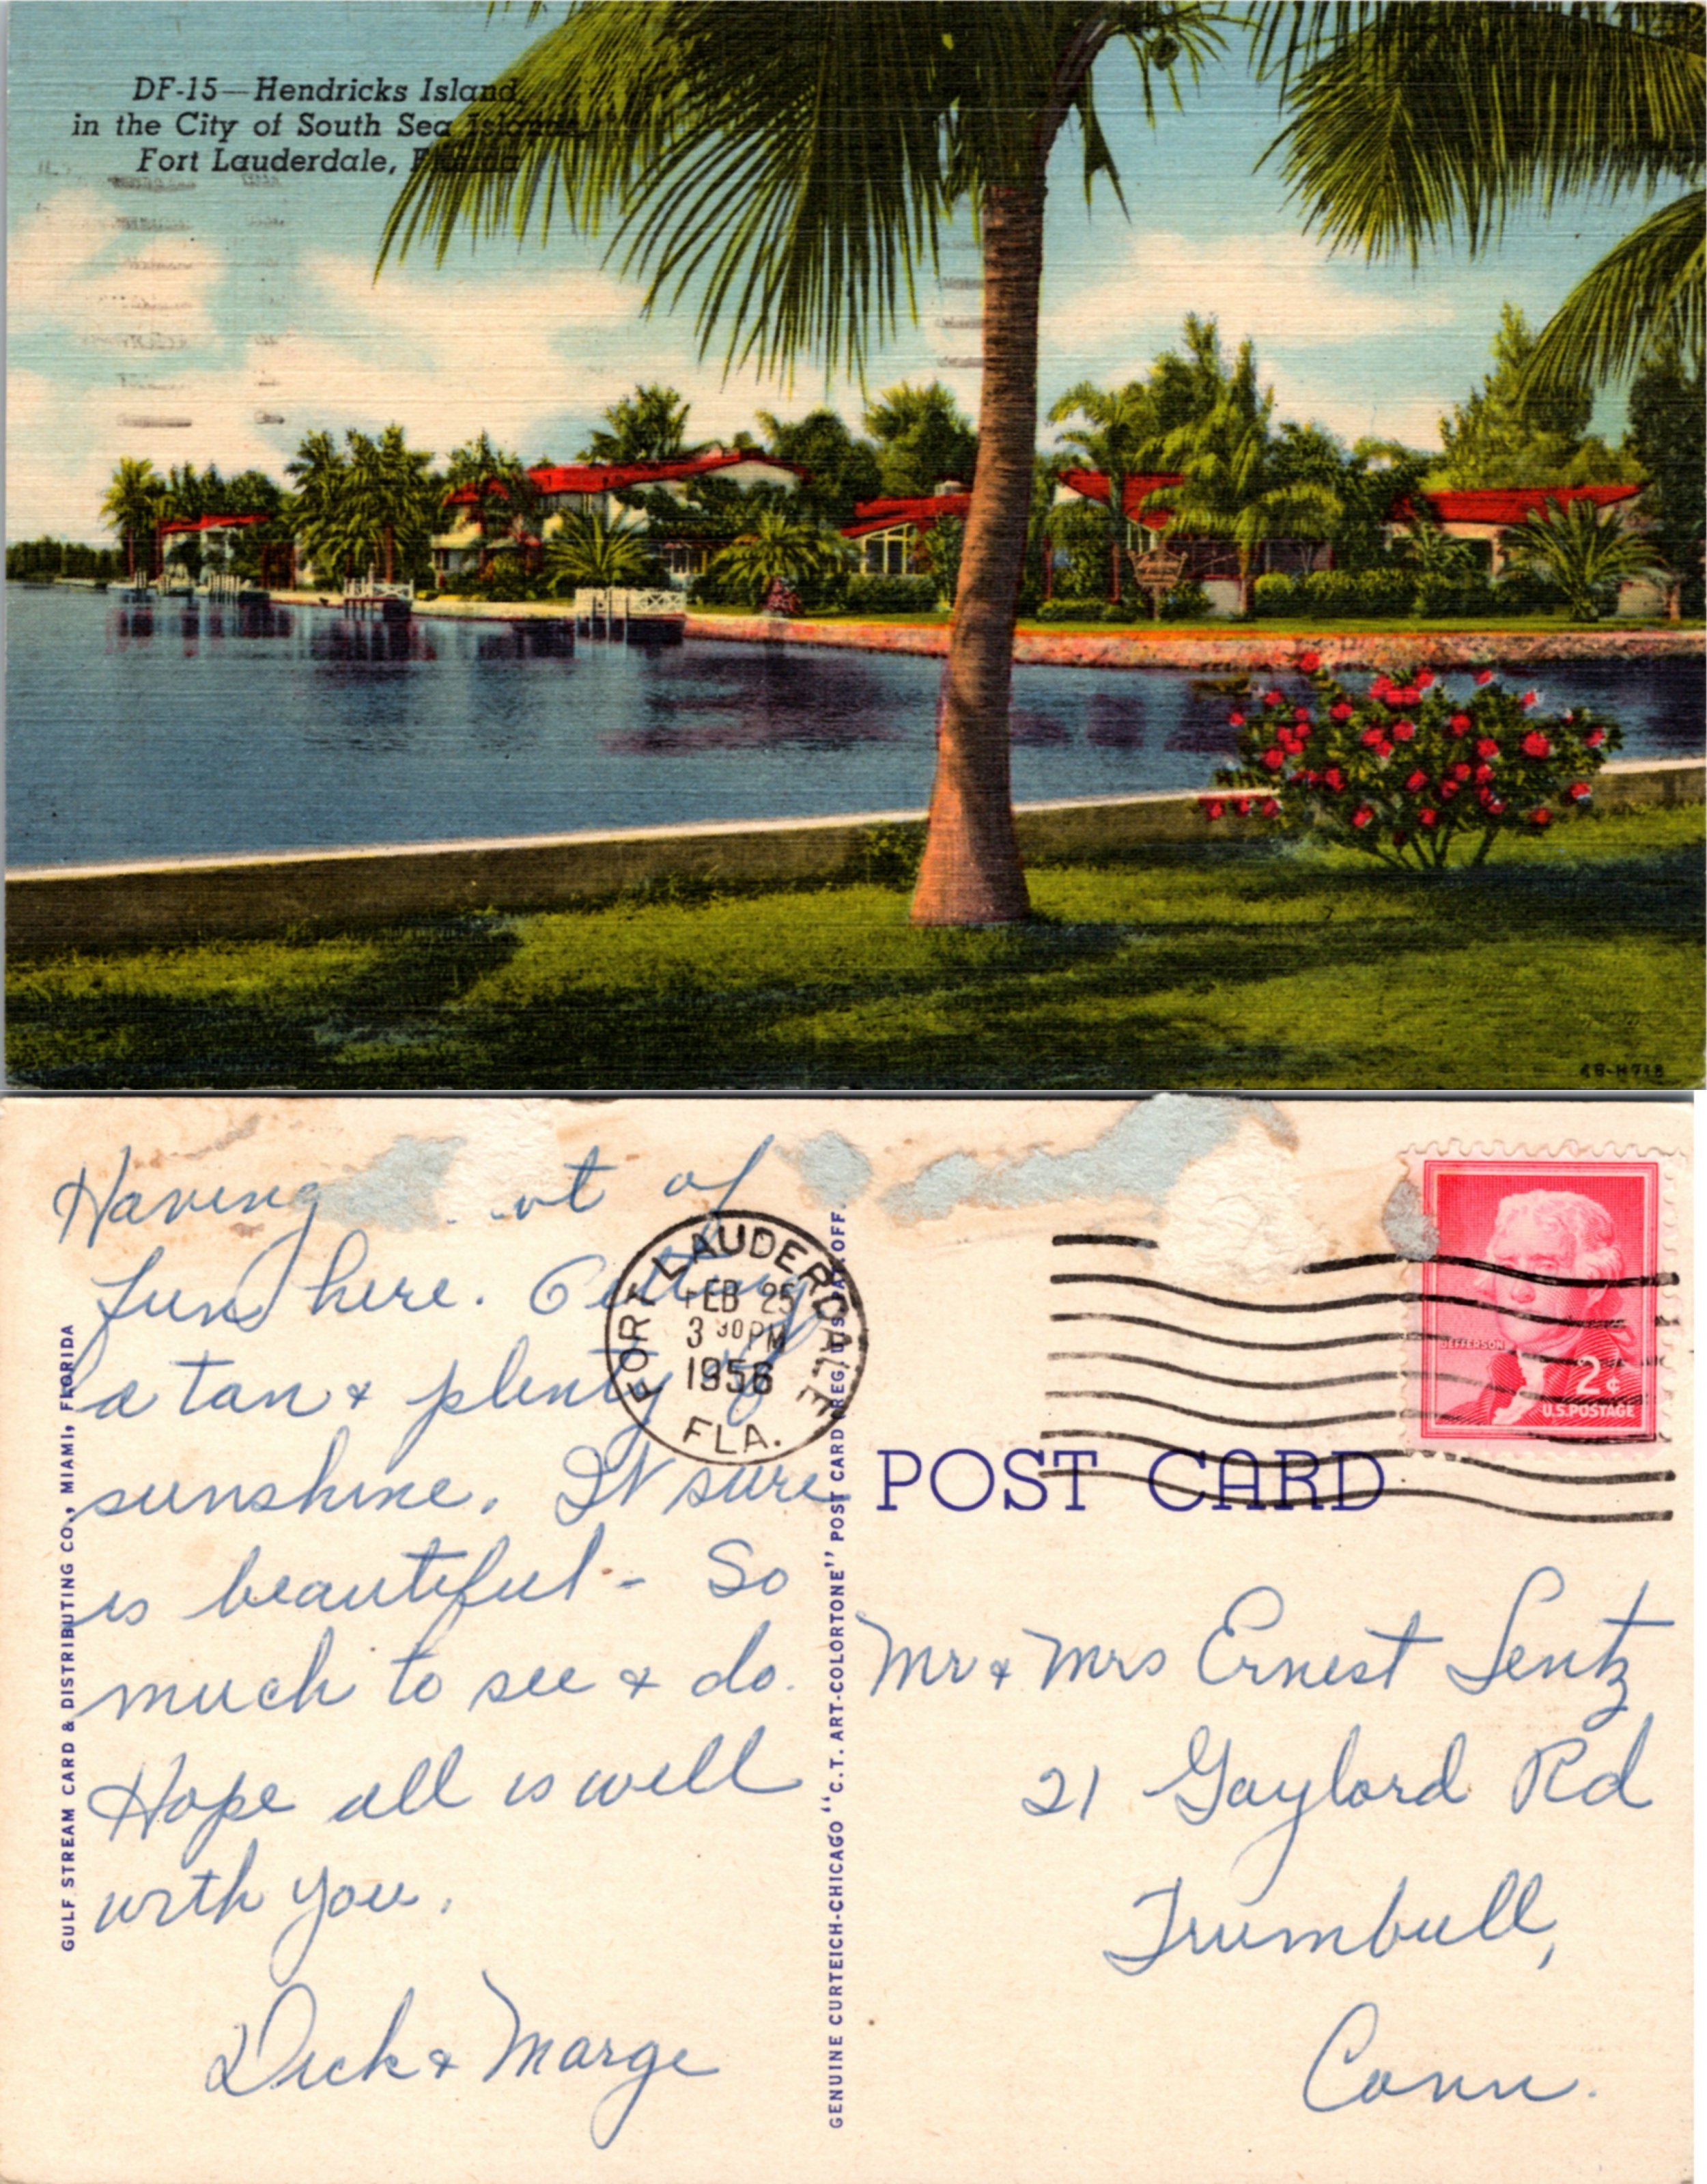 DF-15—Hendricks Island,
in the City of South Sea Islands,
Fort Lauderdale, Florida
4B-H718
Having ot of
fun here. Getting
a tan & plenty of
sunshine. It sure
is beautiful - So
much to see & do.
Hope all is well
with you.
Dick & Marge
GULF STREAM CARD & DISTRIBUTING CO., MIAMI, FLORIDA
FORT LAUDERDALE
FEB 25
3 30 PM
1956
FLA.
GENUINE CURTEICH-CHICAGO "C.T. ART-COLORTONE" POST CARD (REG. U.S. PAT. OFF.
POST CARD
JEFFERSON
2¢
U.S. POSTAGE
Mr & Mrs Ernest Lentz
21 Gaylord Rd
Trumbull,
Conn.